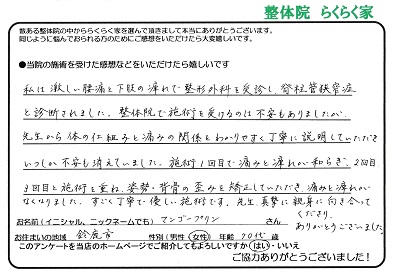 整体院 らくらく家
数ある整体院の中かららくらく家を選んで頂きまして本当にありがとうございます。
同じように悩んでおられる方のためにご感想をいただけたら大変嬉しいです。
●当院の施術を受けた感想などをいただけたら嬉しいです
私は激しい腰痛と下肢の痺れで整形外科を受診し、脊柱管狭窄症
と診断されました。整体院で施術を受けるのは不安もありましたが、
先生から体の仕組みと痛みの関係をわかりやすく丁寧に説明していただき
いつしか不安も消えていました。施術1回目で痛みと痺れが和らぎ、2回目
3回目と施術を重ね、姿勢・背骨の歪みを矯正していただき、痛みと痺れが
なくなりました。すごく丁寧で優しい施術です。先生、真摯に親身に向き合って
くださり、
ありがとうございました
お名前(イニシャル、ニックネームでも) マンゴープリン さん
お住まいの地域 鈴鹿市 性別(男性・女性) 年齢 70代 歳
このアンケートを当店のホームページでご紹介してもよろしいですか(はい・いいえ
ご協力ありがとうございました!